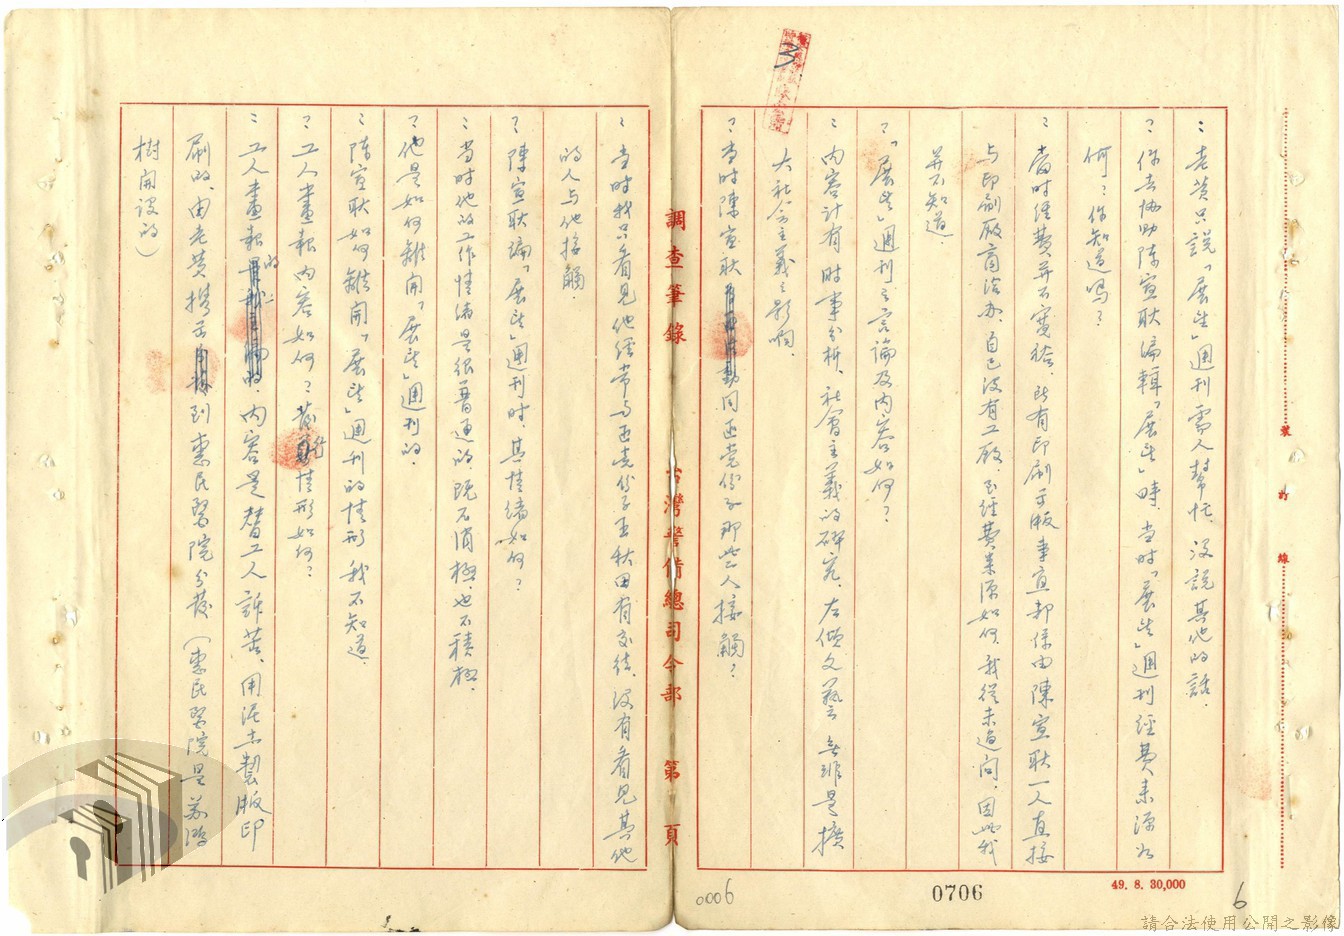 ：老黃只說「展望」週刊需人幫忙、沒說其他的話．
？你去協助陳宣耿編輯「展望」時、當時「展望」週刊經費來源如
何？你知道嗎？
：當時經費并不寬裕、所有印刷可版事宜都係由陳宣耿一人直接
与印刷厰商洽办、自己沒有工厰、至經費來源如何、我從未過问、因此我
并不知道．
？「展望」週刊之言論及内容如何？
：内容計有時事分析、社會主義的研究、左傾文藝、無非是擴
大社会主義之影响．
？當时陳宣耿同匪党份子那些人接觸？
調查筆錄
台灣警備總司令部
第 頁
：当时我只看見他經常与匪党份子王秋田有交往、沒有看見其他
的人与他接觸．
？陳宣耿編「展望」週刊时、其情绪如何？
：当时他的工作情绪是很普通的、既不消極也不積極．
？他是如何離開「展望」週刊的．
：陳宣耿如何離開「展望」週刊的情形我不知道．
？工人畫報内容如何？發行情形如何？
：工人畫報的内容是替工人訴苦、用泥土製版印
刷的、由老黃攜至到惠民醫院分發（惠民醫院是蘇鴻
樹開設的）
3
裝
訂
線
0006
0706
49. 8. 30,000
6
請合法使用公開之影像